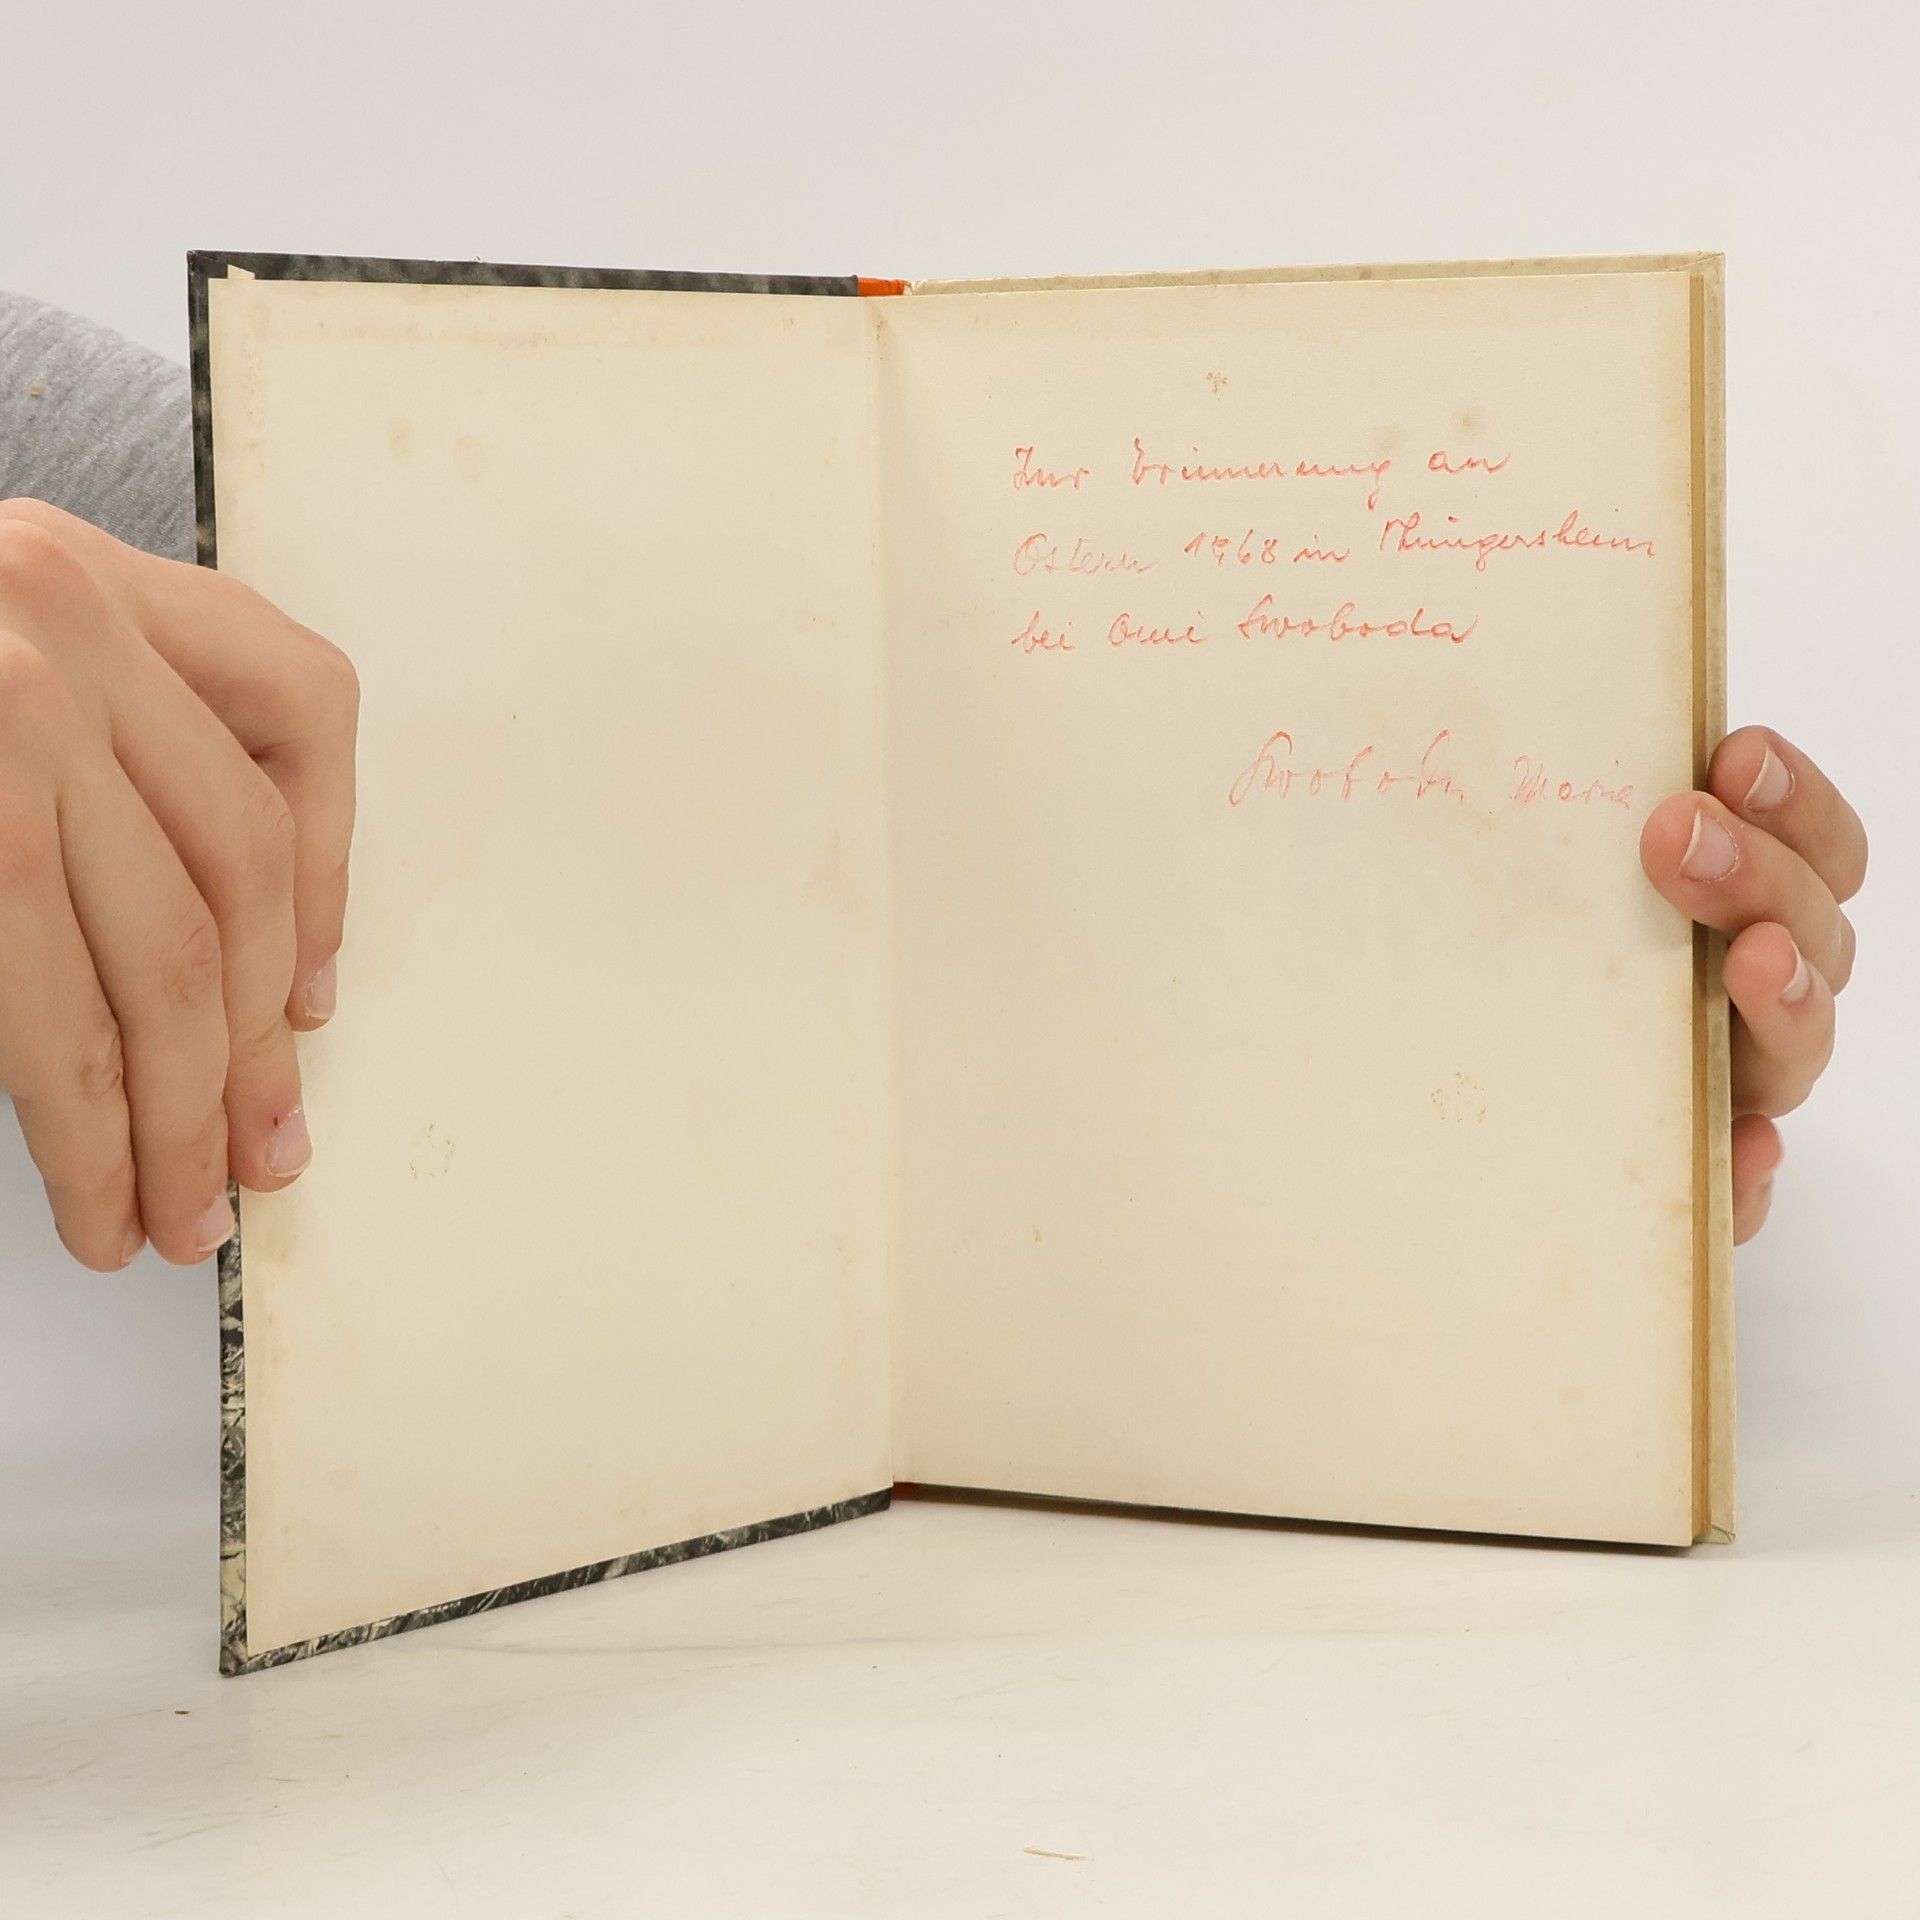 Zur Erinnerung an
Ostern 1968 in Thüngersheim
bei Omi Swoboda
Swoboda Maria